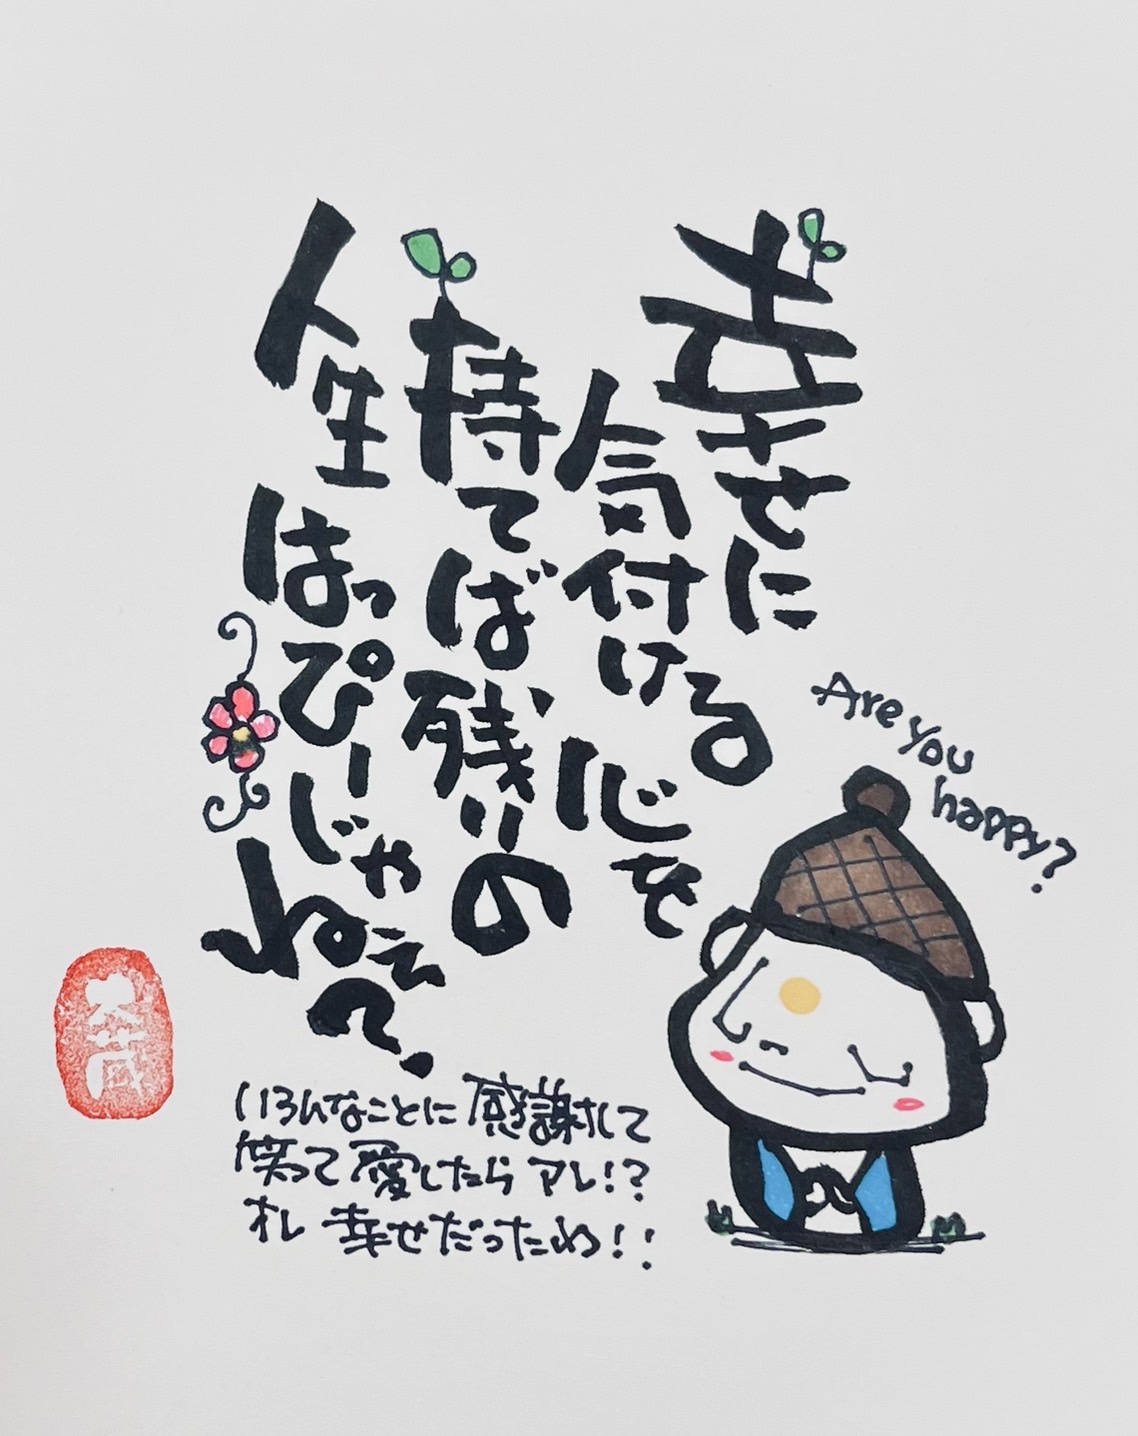 幸せに
気付ける心を
持てば残りの
人生
はっぴーじゃ
ねぇ?
Are you
happy?
いろんなことに感謝して
笑って愛したらアレ!?
オレ幸せだったわ!!